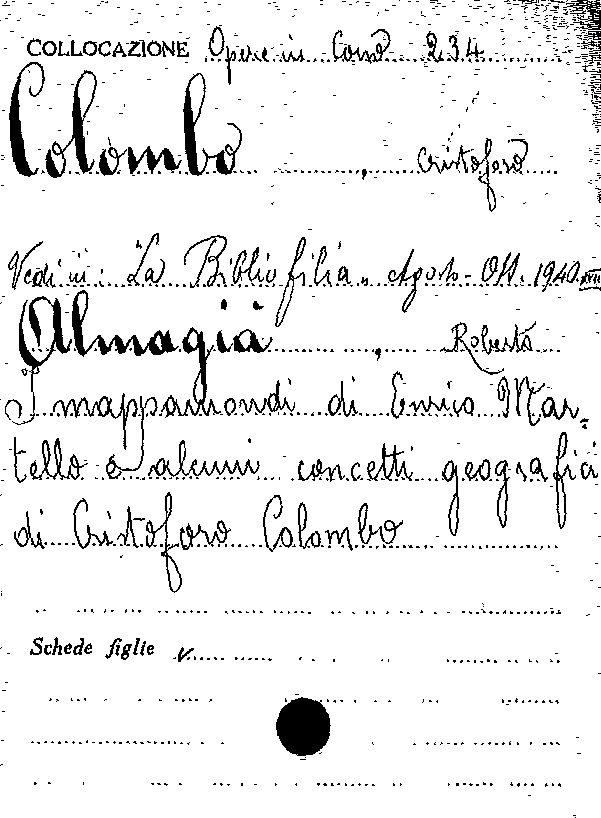 COLLOCAZIONE Opere in Cons 234
Colombo, Cristoforo
Vedi in: "La Bibliofilia" Agosto-Ott. 1940 XVIII
Almagià, Roberto
I mappamondi di Enrico Mar-
tello e alcuni concetti geografici
di Cristoforo Colombo
Schede figlie v